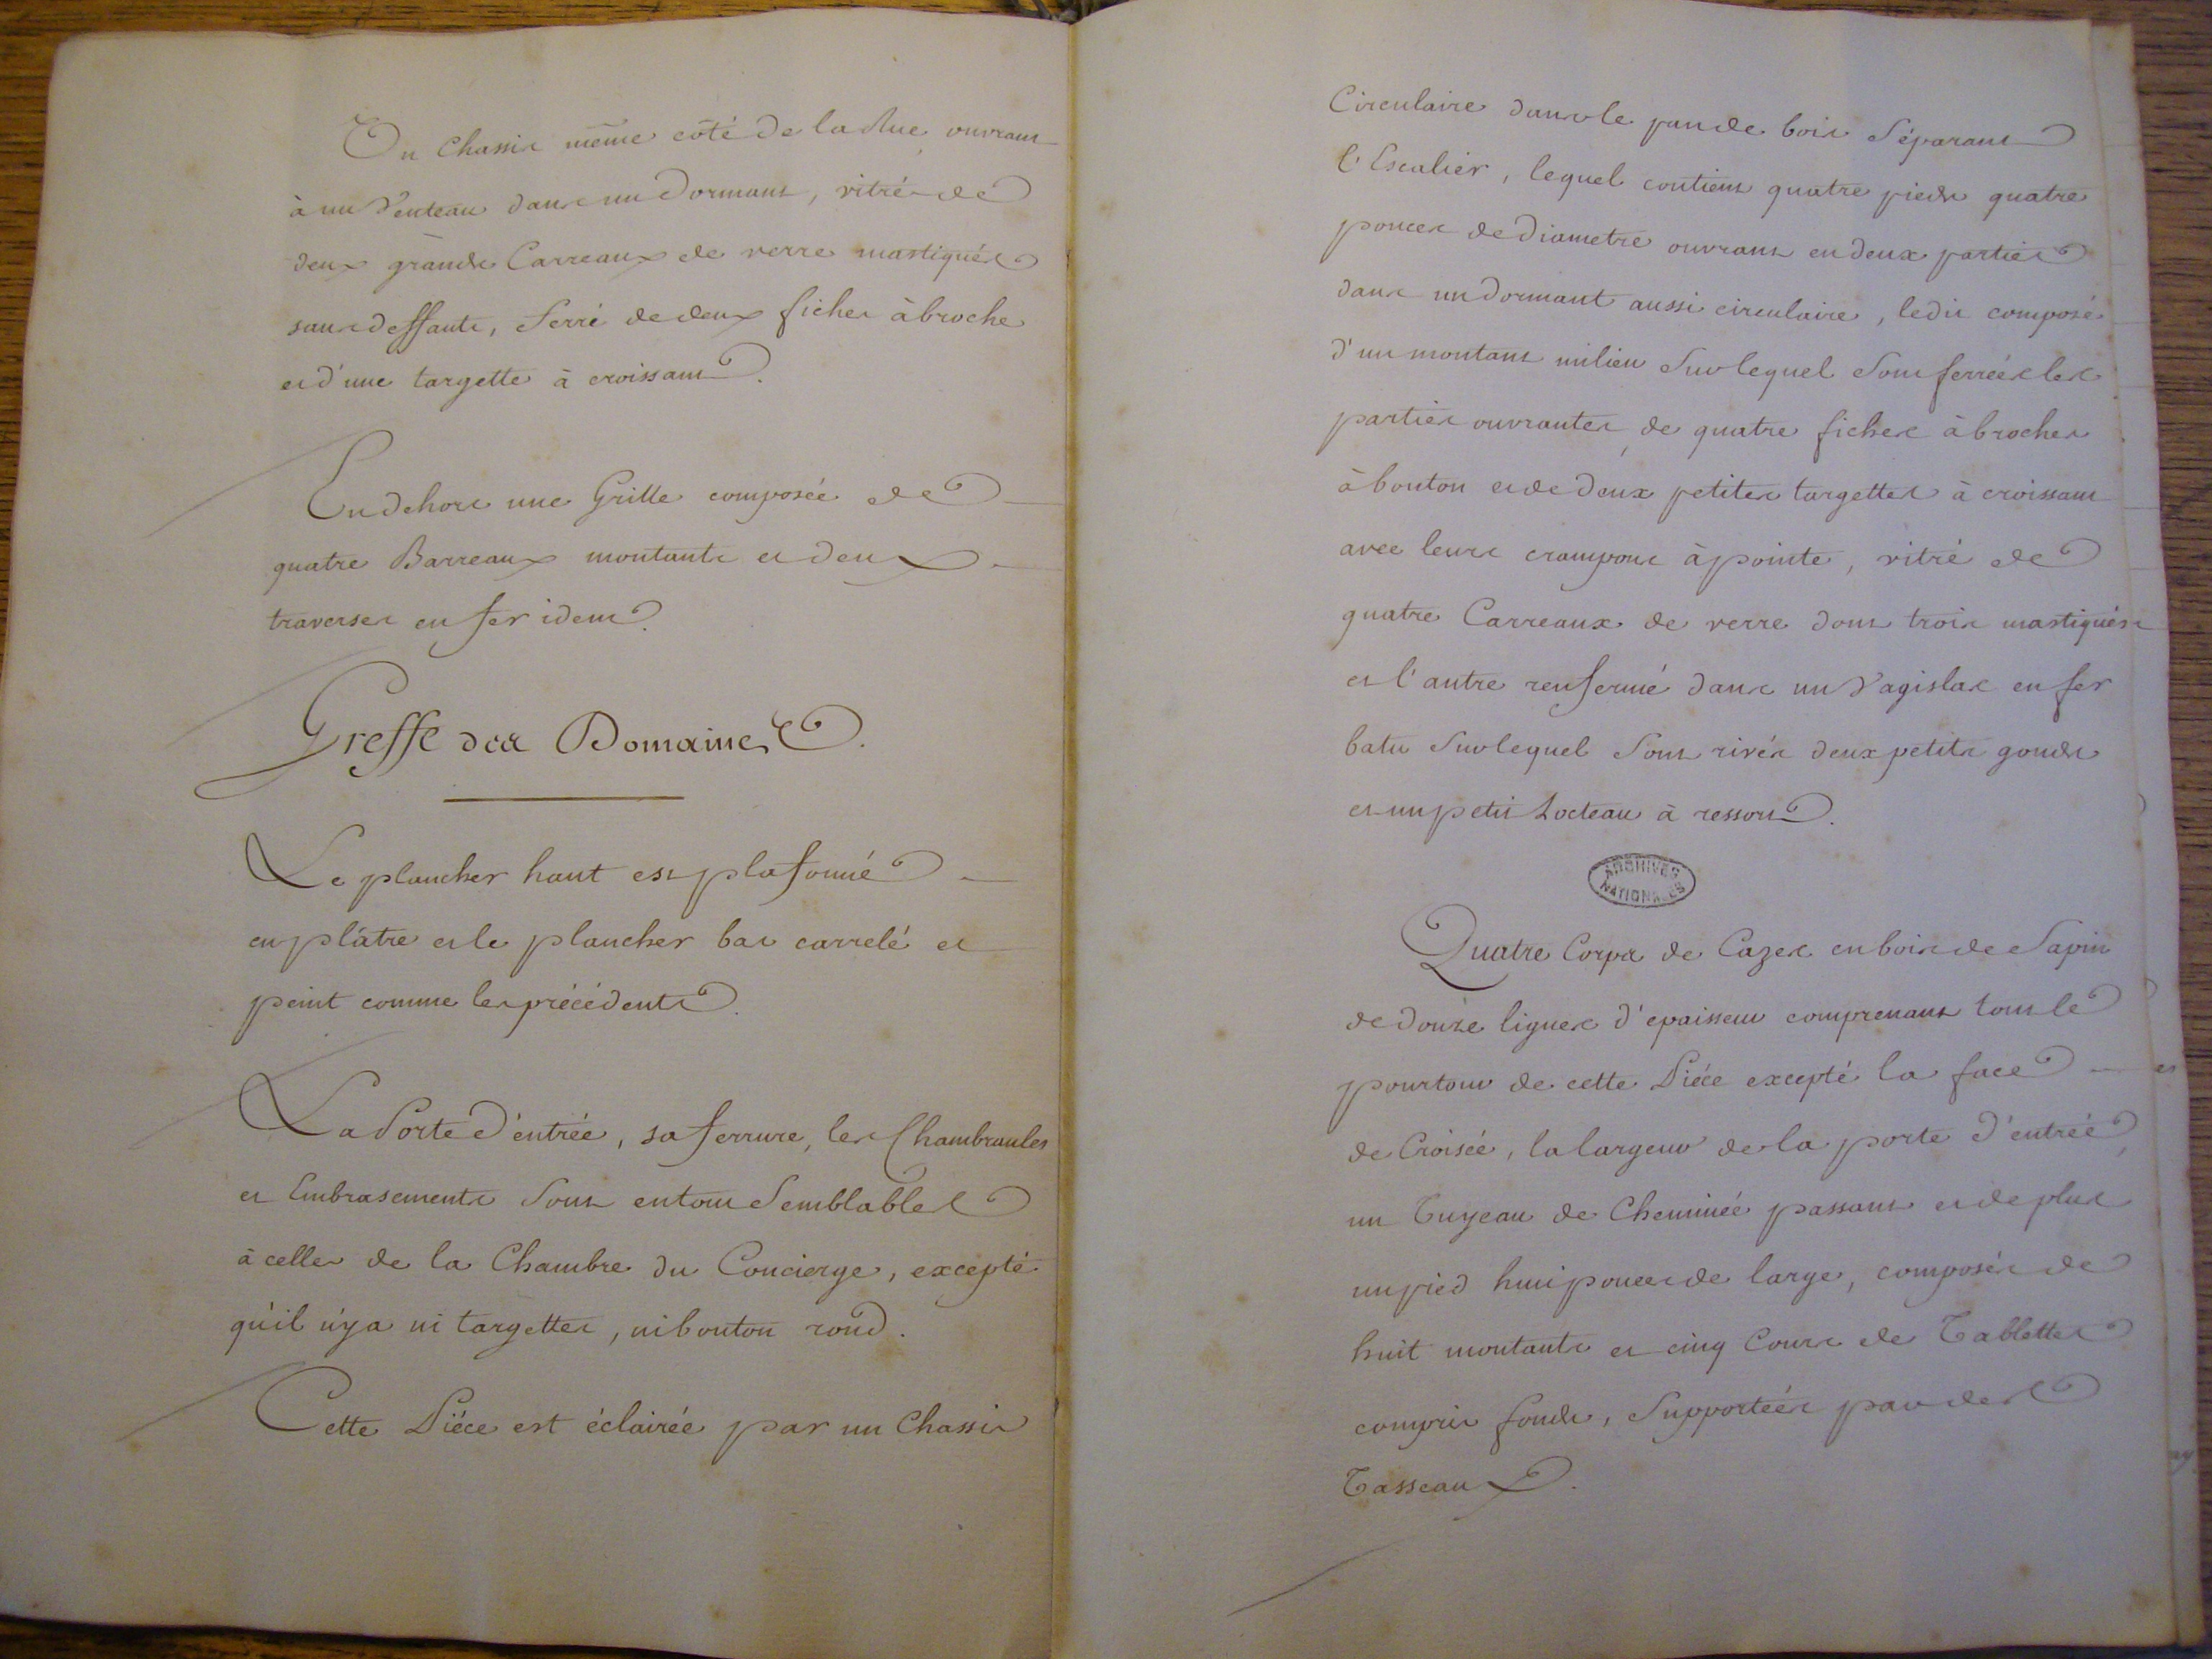 Un Chassis même côté de la Rue ouvrant
à un Venteau dans un Dormant, vitré de
deux grands Carreaux de verre mastiqués
sans deffauts, ferré de deux fiches à broche
et d'une targette à croissant.
En dehors une Grille composée de
quatre Barreaux montants et deux
traverses en fer idem.
Greffe des Domaines.
Le plancher haut est plafonné
en plâtre et le plancher bas carrelé et
peint comme les précédents.
La Porte d'entrée, sa ferrure, les Chambranles
et Embrasements sont en tout Semblables
à celles de la Chambre du Concierge, excepté
qu'il n'y a ni targettes, ni bouton rond.
Cette Piéce est éclairée par un Chassis
Circulaire dans le pan de bois Séparant
l'Escalier, lequel contient quatre pieds quatre
pouces de Diametre ouvrant en deux parties
dans un dormant aussi circulaire, ledit composé
d'un montant milieu Sur lequel Sont ferrées les
parties ouvrantes de quatre fiches à broches
à bouton et de deux petites targettes à croissant
avec leurs crampons à pointe, vitré de
quatre Carreaux de verre dont trois mastiqués
et l'autre renfermé dans un Vagislas en fer
batu Sur lequel Sont rivés deux petits gonds
et un petit Locteau à ressort.
ARCHIVES
NATIONALES
Quatre Corps de Cazes en bois de Sapin
de douze lignes d'epaisseur comprenant tout le
pourtour de cette Piéce excepté la face
de Croisée, la largeur de la porte d'entrée,
un Tuyeau de Cheminée passant et de plus
un pied huit pouces de large, composés de
huit montants et cinq Cours de Tablettes
compris fonds, Supportées par des
Tasseaux.